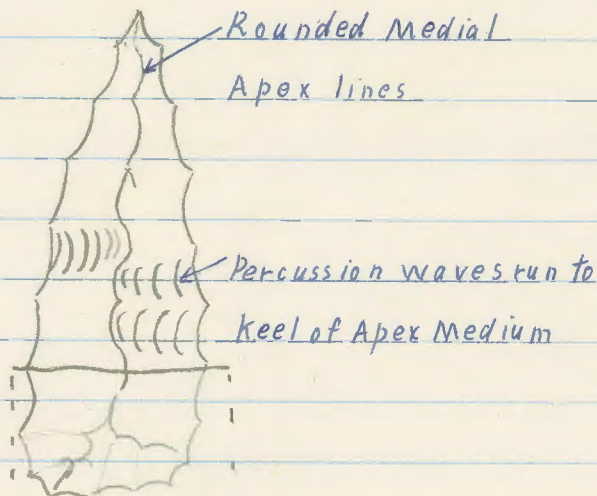 Rounded Medial
Apex lines
Percussion waves run to
Keel of Apex Medium